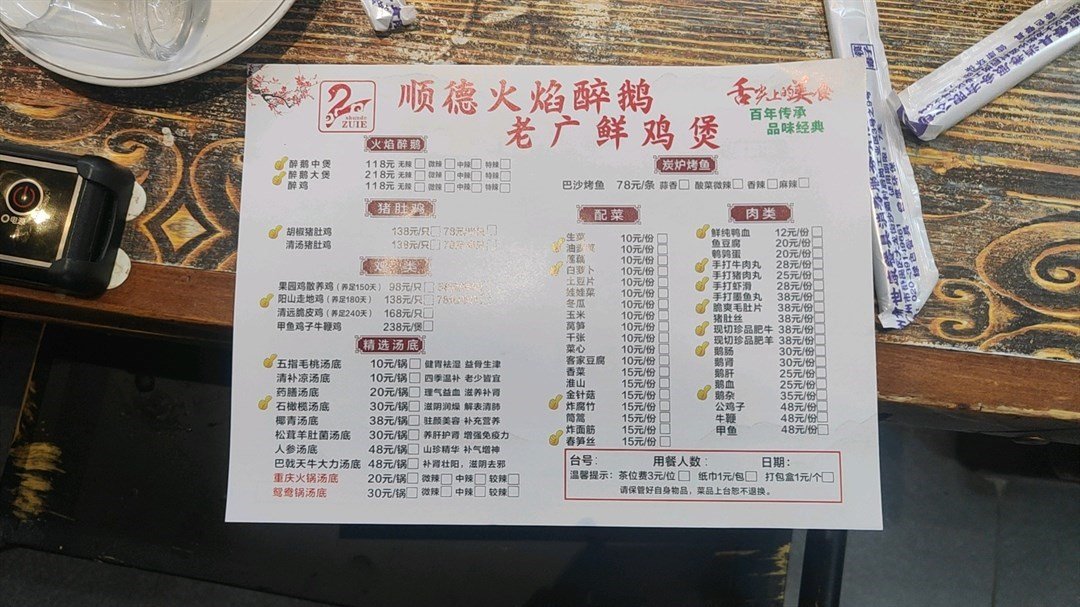 shunde
ZUIE
顺德火焰醉鹅
老广鲜鸡煲
舌尖上的美食
百年传承
品味经典
火焰醉鹅
醉鹅中煲 118元 无辣 微辣 中辣 特辣
醉鹅大煲 218元 无辣 微辣 中辣 特辣
醉鸡 118元 无辣 微辣 中辣 特辣
猪肚鸡
胡椒猪肚鸡 138元/只 78元/半只
清汤猪肚鸡 138元/只 78元/半只
果园鸡散养鸡（养足150天） 98元/只
阳山走地鸡（养足180天） 138元/只
清远脆皮鸡（养足240天） 168元/只
甲鱼鸡子牛鞭鸡 238元/煲
精选汤底
五指毛桃汤底 10元/锅 健胃祛湿 益骨生津
清补凉汤底 10元/锅 四季温补 老少皆宜
药膳汤底 20元/锅 理气益血 滋养补肾
石橄榄汤底 30元/锅 滋阴润燥 解表清肺
椰青汤底 38元/锅 驻颜美容 补充营养
松茸羊肚菌汤底 30元/锅 养肝护肾 增强免疫力
人参汤底 48元/锅 山珍精华 补气增神
巴戟天牛大力汤底 48元/锅 补肾壮阳，滋阴去邪
重庆火锅汤底 20元/锅 微辣 中辣 较辣
鸳鸯锅汤底 30元/锅 微辣 中辣 较辣
炭炉烤鱼
巴沙烤鱼 78元/条 蒜香 酸菜微辣 香辣 麻辣
配菜
生菜 10元/份
油麦菜 10元/份
莲藕 10元/份
白萝卜 10元/份
土豆片 10元/份
娃娃菜 10元/份
冬瓜 10元/份
玉米 10元/份
莴笋 10元/份
千张 10元/份
菜心 10元/份
客家豆腐 10元/份
香菜 15元/份
淮山 15元/份
金针菇 15元/份
炸腐竹 15元/份
茼蒿 15元/份
炸面筋 15元/份
春笋丝 15元/份
肉类
鲜纯鸭血 12元/份
鱼豆腐 20元/份
鹌鹑蛋 20元/份
手打牛肉丸 28元/份
手打猪肉丸 25元/份
手打虾滑 28元/份
手打墨鱼丸 38元/份
脆爽毛肚片 38元/份
猪肚丝 38元/份
现切珍品肥牛 38元/份
现切珍品肥羊 38元/份
鹅肠 30元/份
鹅肾 30元/份
鹅肝 25元/份
鹅血 25元/份
鹅杂 35元/份
公鸡子 48元/份
牛鞭 48元/份
甲鱼 48元/份
台号： 用餐人数： 日期：
温馨提示：茶位费3元/位 纸巾1元/包 打包盒1元/个
请保管好自身物品，菜品上台恕不退换。